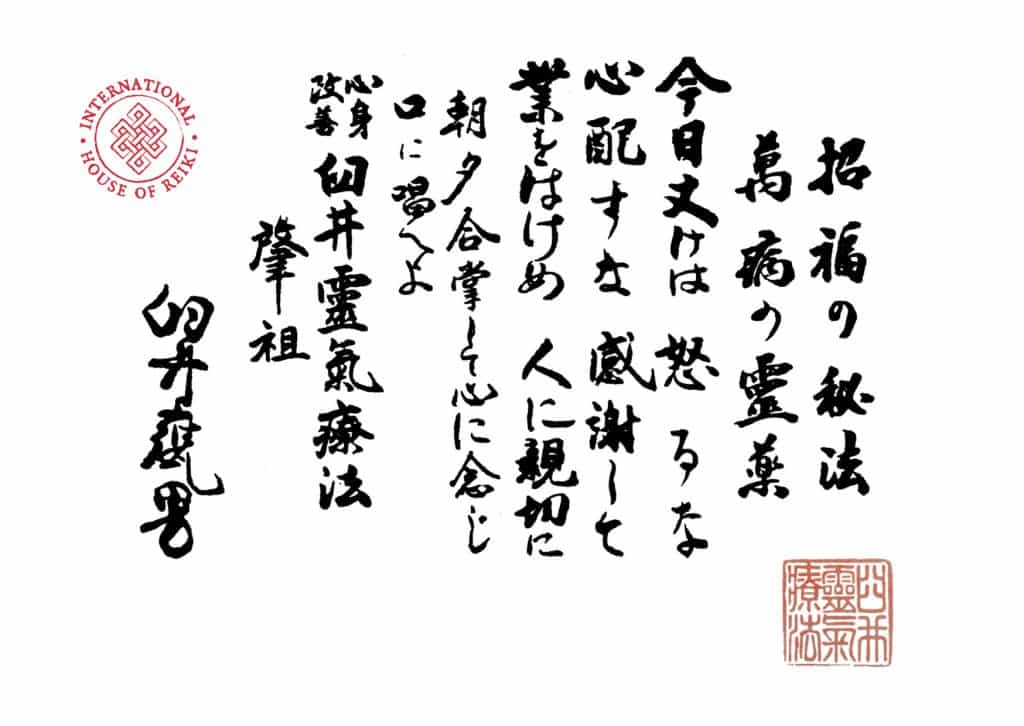 招福の秘法
萬病の靈薬
今日丈けは 怒るな
心配すな 感謝して
業をはけめ 人に親切に
朝夕合掌して心に念じ
口に唱へよ
心身
改善
臼井靈氣療法
肇祖
臼井甕男
臼井
靈氣
療法
INTERNATIONAL HOUSE OF REIKI